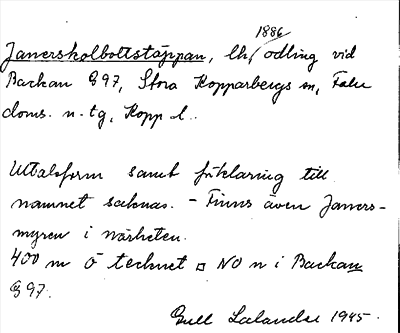 1886
Janerskolbottstäppan, lh, odling vid
Backan G 97, Stora Kopparbergs sn, Falu
doms. n. tg, Kopp l.
Uttalsform samt förklaring till
namnet saknas. – Finns även Janers-
myren i närheten.
400 m Ö tecknet □ NO n i Backan
G 97.
Gull Lalander 1945.